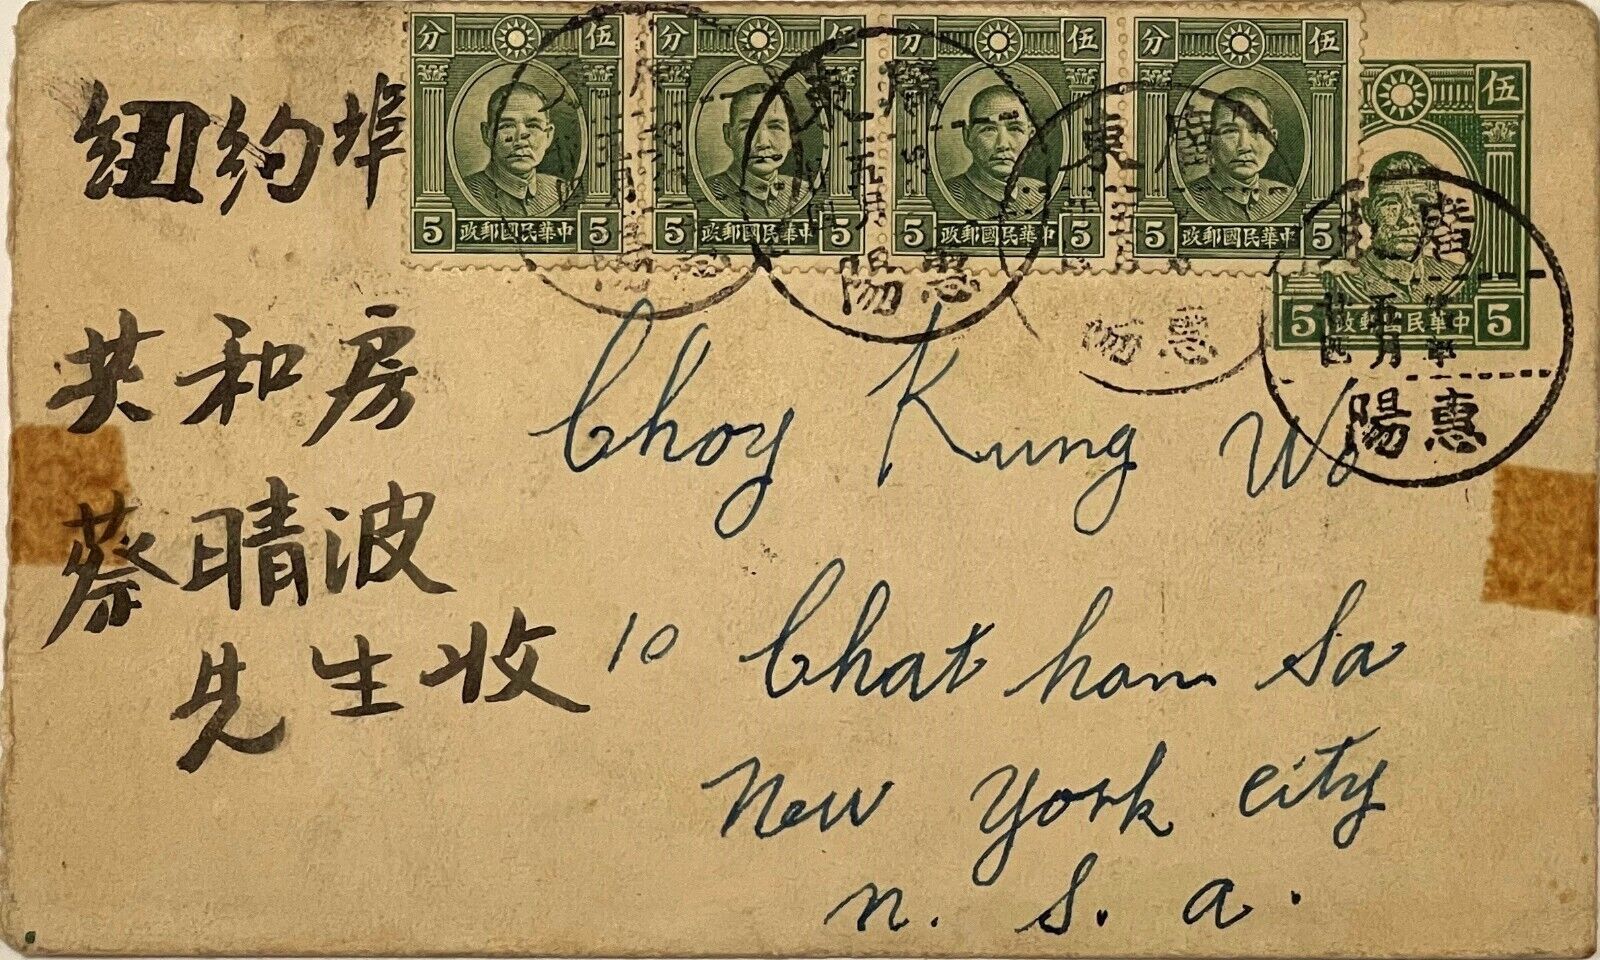 分 伍 分 伍 分 伍 分 伍 伍
5 政郵國民華中 5 5 政郵國民華中 5 5 政郵國民華中 5 5 政郵國民華中 5
5 政郵國民華中 5
東廣
東廣
廣
五月
陽惠
陽惠
陽惠
陽惠
紐約埠
共和房
蔡晴波
先生收
Choy Kung Wo
10 Chat ham Sa
New York City
n. S. a.